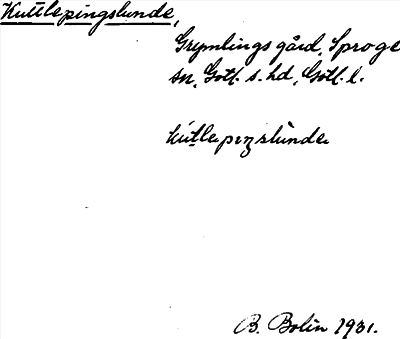 Kuttlepingslunde,
Grymlings gård, Sproge
sn, Gotl. s. hd, Gotl. l.
kútlepıŋslùnde
B. Bolin 1931.